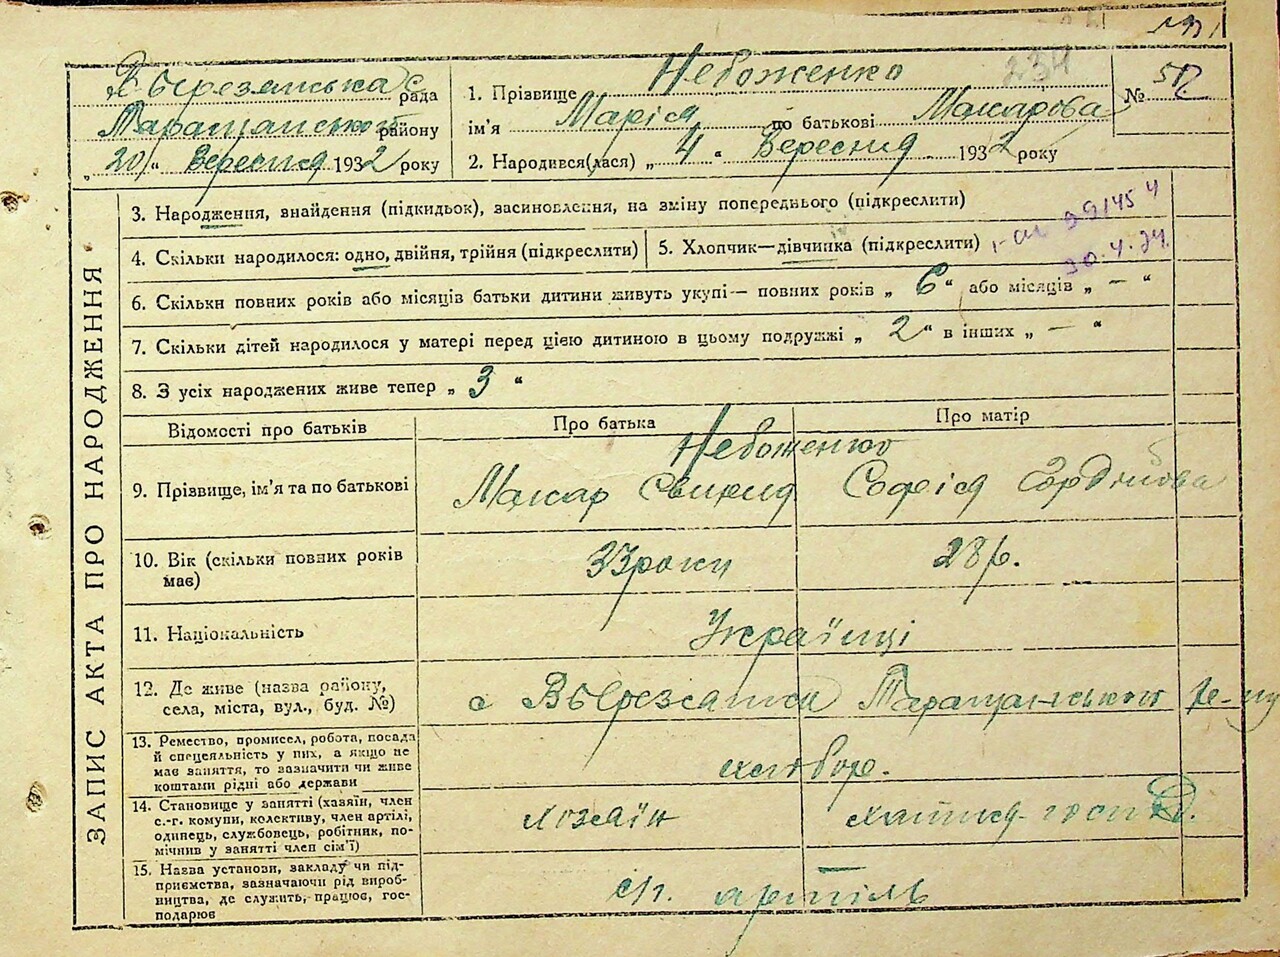 234
В березанська с рада
Таращанського району
„20“ Вересня 1932 року
1. Прізвище Небоженко
ім'я Марія по батькові Макарова
2. Народився(лася) „4“ Вересня 1932 року
№ 52
ЗАПИС АКТА ПРО НАРОДЖЕННЯ
3. Народження, знайдення (підкидьок), засиновлення, на зміну попереднього (підкреслити)
4. Скільки народилося: одно, двійня, трійня (підкреслити)
5. Хлопчик—дівчинка (підкреслити)
6. Скільки повних років або місяців батьки дитини живуть укупі — повних років „6“ або місяців „—“
7. Скільки дітей народилося у матері перед цією дитиною в цьому подружжі „2“ в інших „—“
8. З усіх народжених живе тепер „3“
Відомості про батьків
Про батька
Про матір
9. Прізвище, ім'я та по батькові
Небоженко
Макар
Софія Гордійова
10. Вік (скільки повних років
має)
33 роки
28 р.
11. Національність
Українці
12. Де живе (назва району,
села, міста, вул., буд. №)
с В березанки Таращанського р-ну
13. Ремество, промисел, робота, посада
й спецеяльність у них, а якщо не
має заняття, то зазначити чи живе
коштами рідні або держави
хлібор.
14. Становище у занятті (хазяїн, член
с.-г. комуни, колективу, член артілі,
одинець, службовець, робітник, по-
мічнив у занятті член сім'ї)
хозаїн
хатня госп
15. Назва установи, закладу чи під-
приємства, зазначаючи рід вироб-
ництва, де служить, працює, гос-
подарює
с/г. артіль